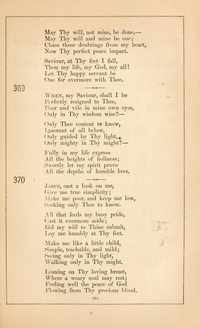 May Thy will, not mine, be done,—
May Thy will and mine be one;
Chase these doubtings from my heart,
Now Thy perfect peace impart.
Saviour, at Thy feet I fall,
Thou my life, my God, my all!
Let Thy happy servant be
One for evermore with Thee.
369
WHEN, my Saviour, shall I be
Perfectly resigned to Thee,
Poor and vile in mine own eyes,
Only in Thy wisdom wise?—
Only Thee content to know,
Ignorant of all below,
Only guided by Thy light,
Only mighty in Thy might?—
Fully in my life express
All the heights of holiness;
Sweetly let my spirit prove
All the depths of humble love.
370
LORD, cast a look on me,
Give me true simplicity;
Make me poor, and keep me low,
Seeking only Thee to know.
All that feeds my busy pride,
Cast it evermore aside;
Bid my will to Thine submit,
Lay me humbly at Thy feet.
Make me like a little child,
Simple, teachable, and mild;
Seeing only in Thy light,
Walking only in Thy might.
Leaning on Thy loving breast,
Where a weary soul may rest;
Feeling well the peace of God
Flowing from Thy precious blood.